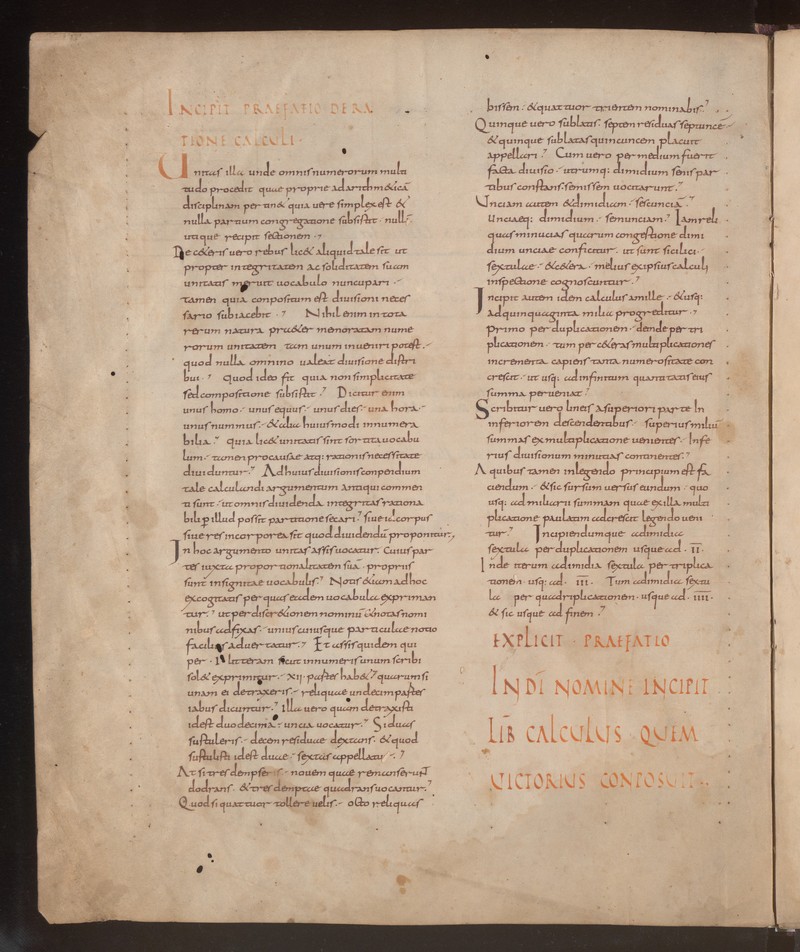 INCIPIT PRAEFATIO DE RA
TIONE CALCULI
Unitas illa unde omnis numerorum multi
tudo procedit quae proprie ad arithm&icā
disciplinam per tin& quia uere simplex est &
nulla partium congregatione subsistit null'
utique recipit sectionem
De c&eris uero rebus lic& aliquid tale sit ut
propter integritatem ac soliditatem suam
unitatis meruit uocabulo nuncupari
tamen quia conpositum est diuisioni neces
sario subiacebit Nihil enim in tota
rerum natura pra&er memoratam nume
rorum unitatem tam unum inueniri potest
quod nulla omnino ualeat diuisione distri
bui Quod ideo fit quia non simplicitate
sed compositione subsistit Dicitur enim
unus homo unus equus unus dies una hora
unus nummus & alia huiusmodi innumera
bilia quia lic& unitatis sint sortita uocabu
lum tamen pro causae atq; rationis necessitate
diuiduntur Ad huius diuisionis conpendium
tale calculandi argumentum antiqui commen
ti sunt ut omnis diuidenda integritas rationa
bili p illud possit partitione secari siue id corpus
siue res incorporea sit quod diuidendū proponitur
In hoc argumento unitas assis uocatur Cuius par
tes iuxta proportionalitatem suā propriis
sunt insignitae uocabulis Notis &iam ad hoc
excogitatis per quas eadem uocabula expriman
tur ut per discr&ionem nominū & notas nomi
nibus adfixas unius cuiusque particulae notio
facilius aduertatur Et assis quidem qui
per I litteram sicut in numeris unum scribi
sol& exprimitur XII partes hab& quarum si
unam ei detraxeris reliquae undecim partes
iabus dicuntur Illa uero quam detraxisti
idest duodecima uncia uocatur Si duas
sustuleris decem residuae dextans & quod
sustulisti idest duae sextas appellatur
At si tres dempseris nouem quae remanserunt
dodrans & tres demptae quadrans uocantur
Quod si quattuor tollere uelis octo reliquas
bissem & quattuor trientem nominabis
Quinque uero sublatis septem residuas septuncē
& quinque sublatas quincuncem placuit
appellari Cum uero per medium fuerit
facta diuisio utrumq; dimidium senis par
tibus constans semissem uocitarunt
Unciam autem & dimidiam sescunciā
Unciaeq; dimidium semunciam Iam reli
quas minucias quarum congestione dimi
dium unciae conficitur ut sunt sicilici
sextulae & c&era melius ex ipsius calculi
inspectione cognoscuntur
Incipit autem idem calculus a mille & usq;
ad quinquaginta milia progreditur
Primo per duplicationem deinde per tri
plicationem tum per c&eras multiplicationes
incrementa capiens tanta numerositate con
crescit ut usq; ad infinitum quantitatis eius
summa perueniat
Scribitur uero lineis a superiori parte In
inferiorem descendentibus superius milium
summas ex multiplicatione uenientes Infe
rius diuisionum minutias continentes
A quibus tamen in legendo principium est fa
ciendum & sic sursum uersus eundum quo
usq; ad miliarii summam quae ex illa multi
plicatione paulatim adcrescit legendo ueni
tur Incipiendumque a dimidia
sextula per duplicationem usque ad II
Inde iterum a dimidia sextula per triplica
tionem usq; ad III Tum a dimidia sextu
la per quadriplicationem usque ad IIII
& sic usque ad finem
EXPLICIT PRAEFATIO
IN DĪ NOMINE INCIPIT
LIB CALCULUS QUEM
UICTORIUS CONPOSUIT